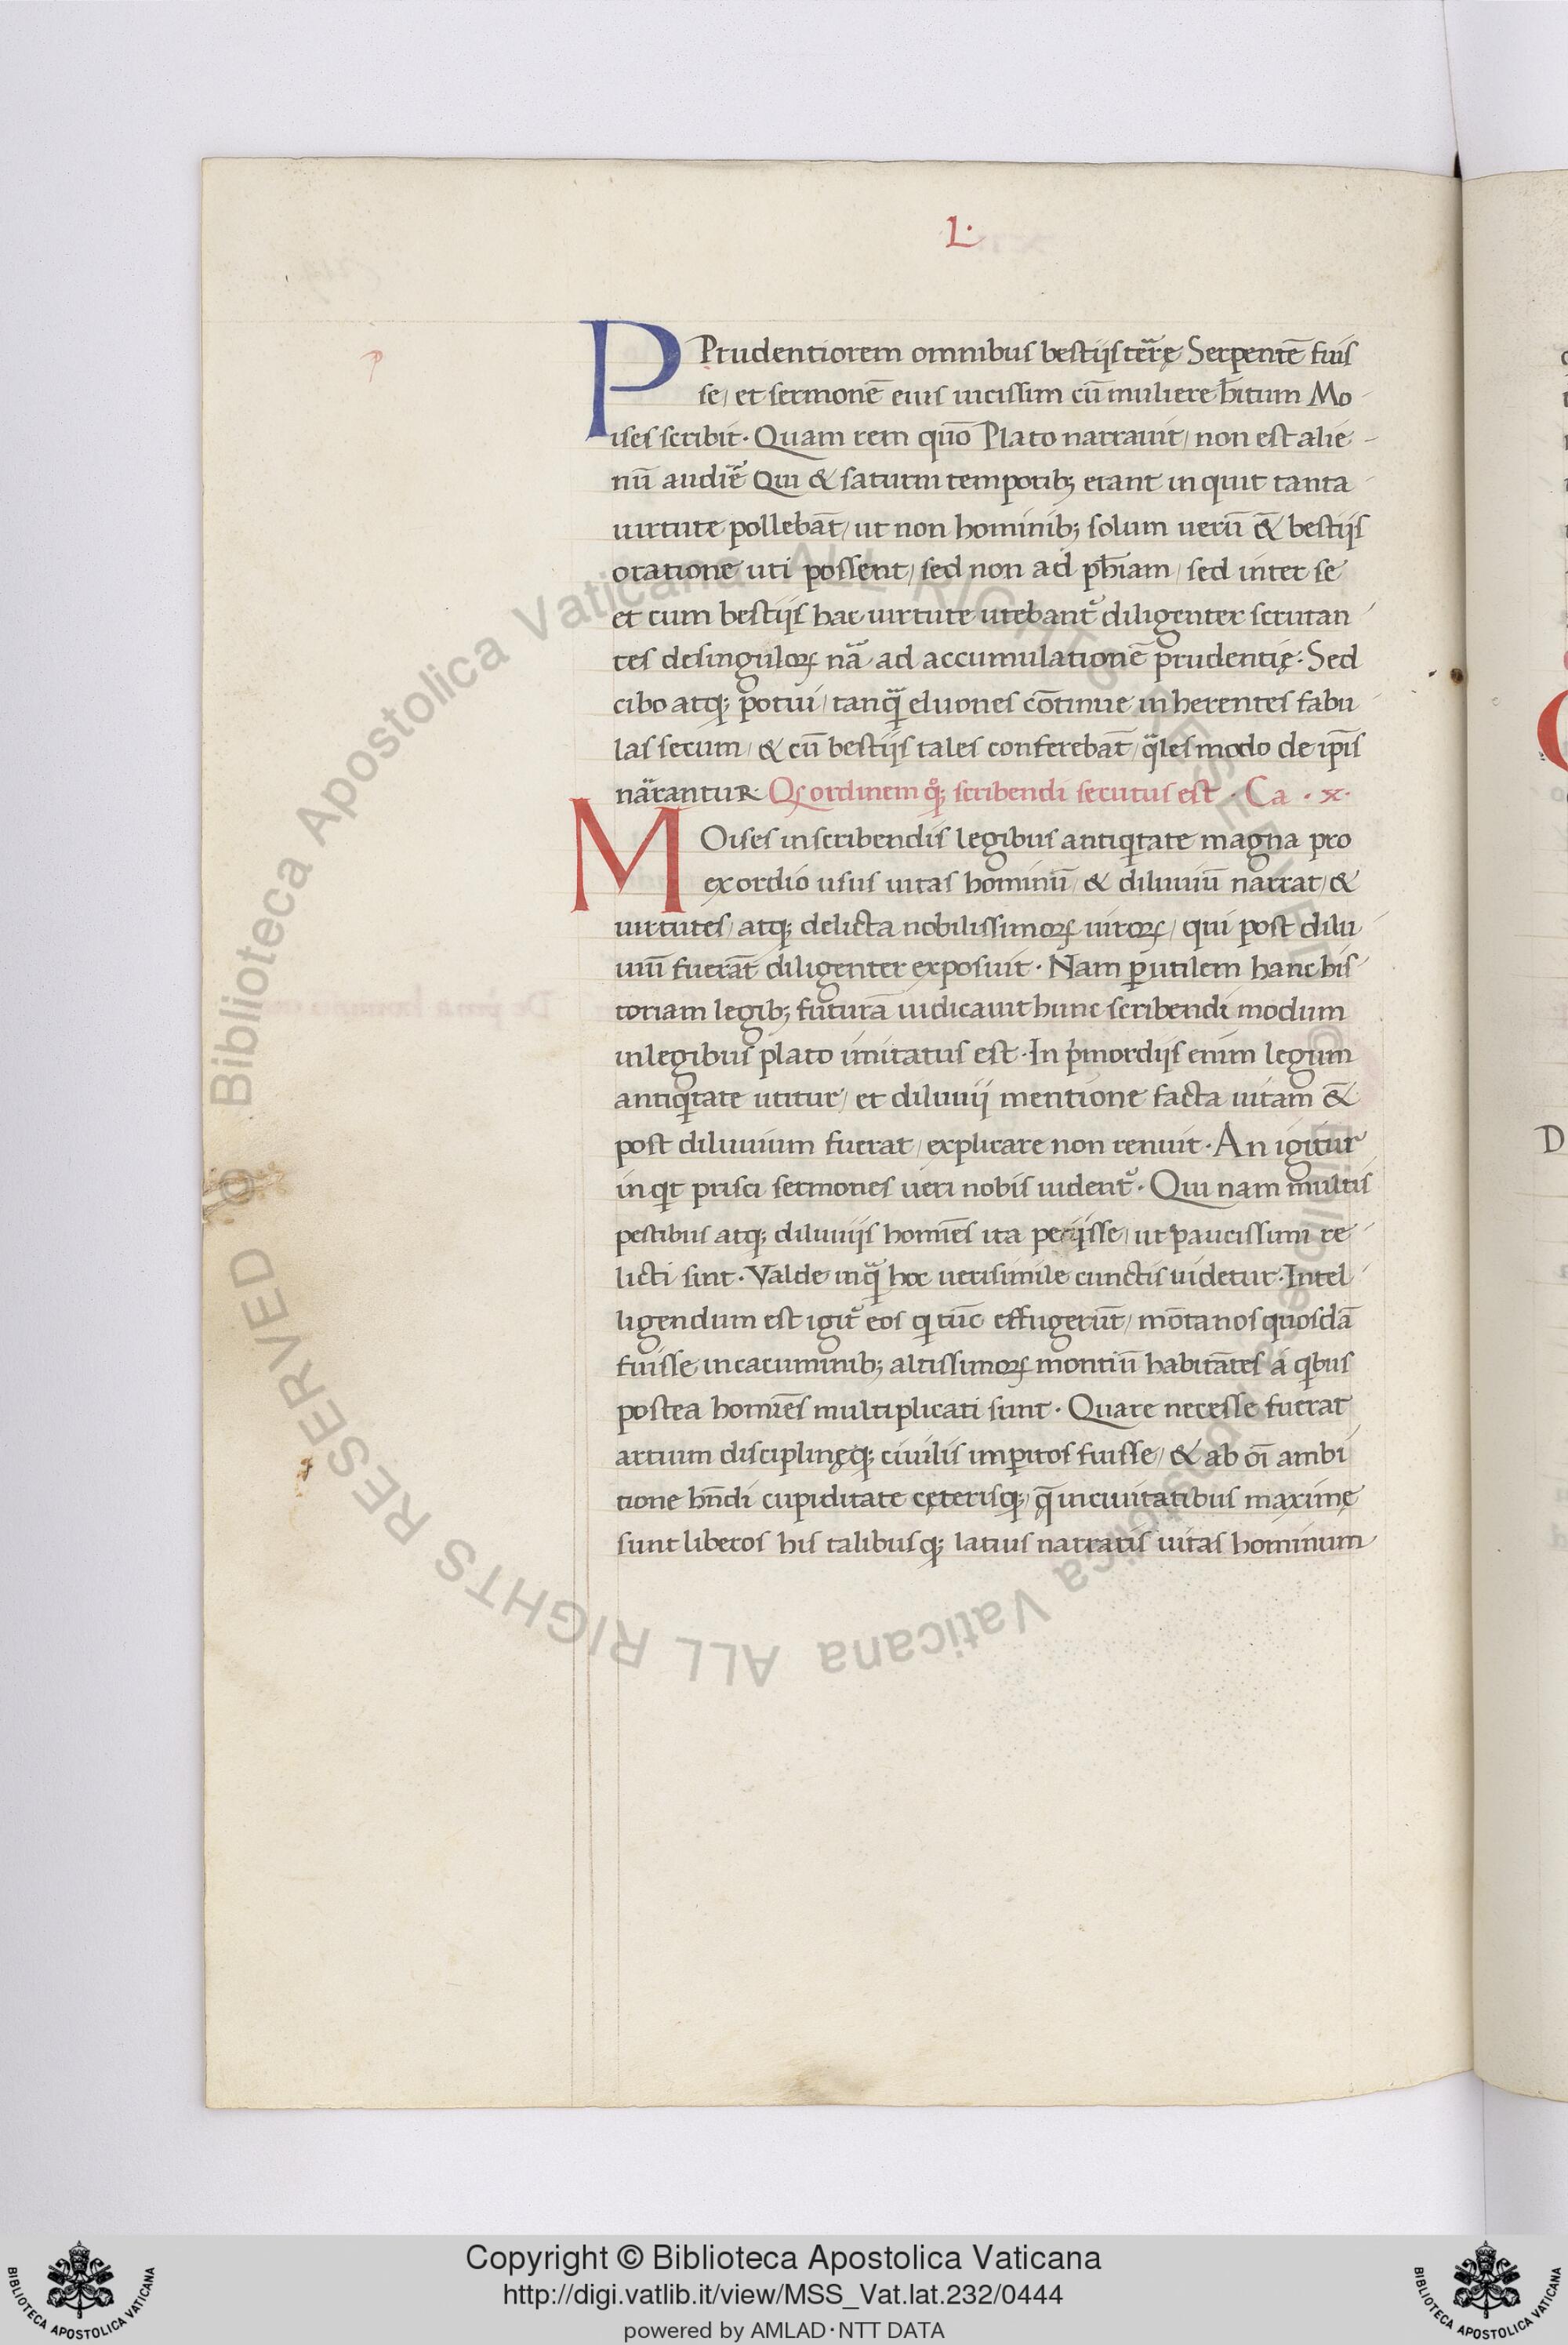 L·
P Prudentiorem omnibus bestijs terrę Serpentē fuis
se/ et sermonē eius uicissim cū muliere hītum Mo
ises scribit· Quam rem quō Plato narrauit/ non est alie-
nū audiē Qui & saturni temporib; erant inquit tanta
uirtute pollebāt/ ut non hominib; solum uerū & bestijs
oratione uti possent/ sed non ad phiam/ sed inter se
et cum bestijs hac uirtute utebant diligenter scrutan
tes desinguloꝝ nā ad accumulationē prudentię· Sed
cibo atq; potui/ tanq̄ eluones cōtinue inherentes fabu
las secum/ & cū bestijs tales conferebāt/ q̄les modo de ip̄is
nārantur Qꝫ ordinem scribendi secutus est · Ca · x·
M Oises inscribendis legibus antiqtate magna pro
exordio usus uitas hominū/ & diluuiū narrat/ &
uirtutes/ atq; delicta nobilissimoꝝ uiroꝝ/ qui post dilu
uiū fuerāt diligenter exposuit· Nam ꝑutilem hanc his
toriam legib; futurā iudicauit hunc scribendi modum
inlegibus plato imitatus est· In pmordijs enim legum
antiqtate utitur/ et diluuij mentione facta uitam &
post diluuium fuerat/ explicare non renuit· An igitur
inqt prisci sermones ueri nobis uident· Qui nam multis
pestibus atq; diluuijs homīes ita perijsse/ ut paucissimi re
licti sint· Valde inq̄ hoc uerisimile cunctis uidetur· Intel
ligendum est igit eos q tūc effugerūt/ mōtanos quosdā
fuisse incacuminib; altissimoꝝ montiū habitātes a qbus
postea homīes multiplicati sunt· Quare necesse fuerat
artium disciplinęq; ciuilis imꝑitos fuisse/ & ab oī ambi
tione hn̄di cupiditate cęterisq; q̄ inciuitatibus maximę
sunt liberos his talibusq; latius narratis uitas hominum
© Biblioteca Apostolica Vaticana ALL RIGHTS RESERVED © Biblioteca Apostolica Vaticana ALL RIGHTS RESERVED
Copyright © Biblioteca Apostolica Vaticana
http://digi.vatlib.it/view/MSS_Vat.lat.232/0444
powered by AMLAD·NTT DATA
BIBLIOTECA APOSTOLICA VATICANA
BIBLIOTECA APOSTOLICA VATICANA